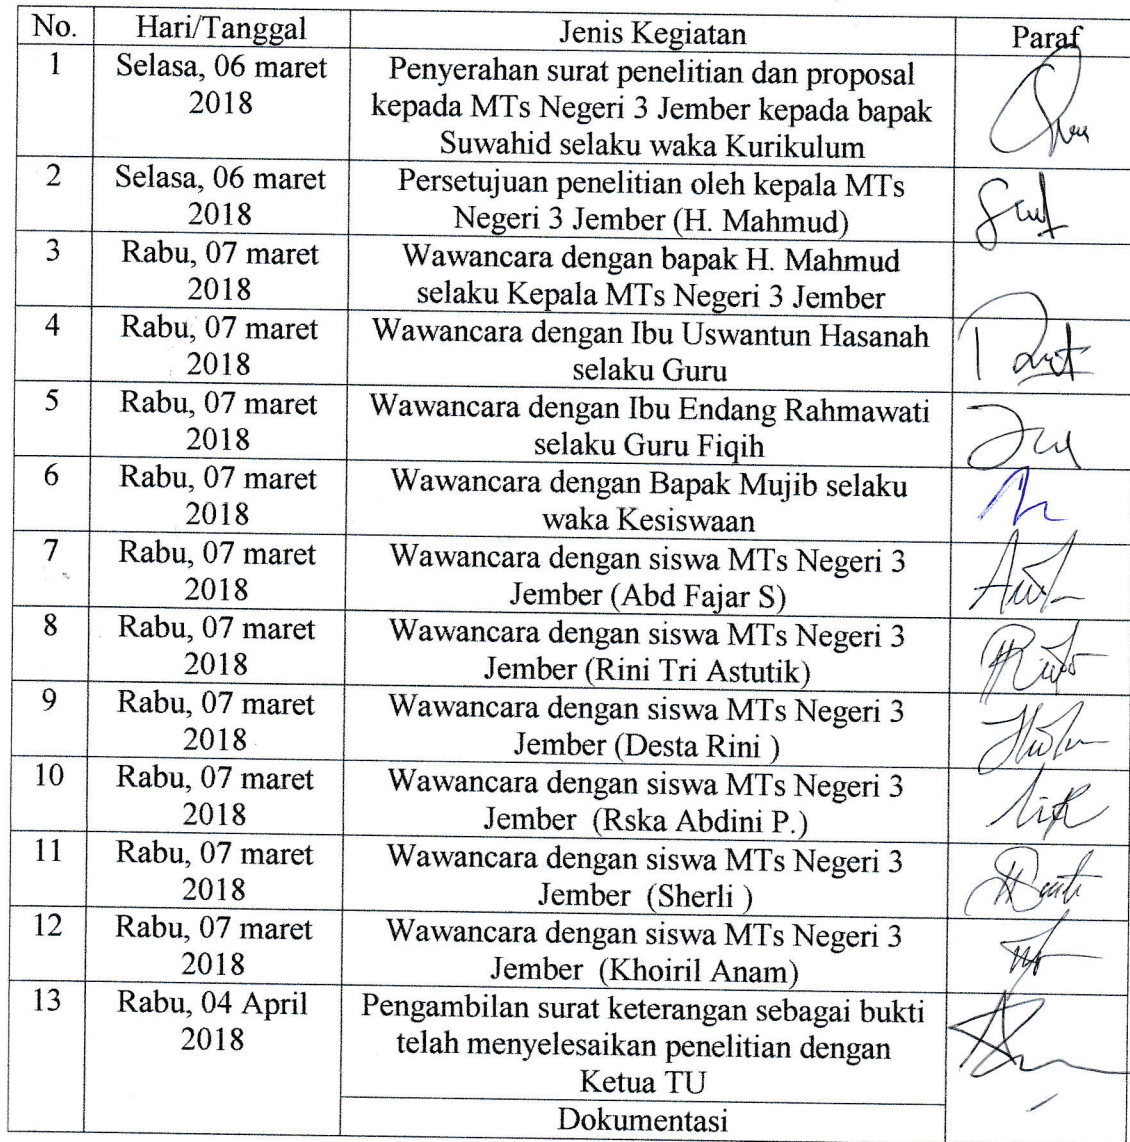 No. Hari/Tanggal Jenis Kegiatan Paraf
1 Selasa, 06 maret 2018 Penyerahan surat penelitian dan proposal
kepada MTs Negeri 3 Jember kepada bapak
Suwahid selaku waka Kurikulum
2 Selasa, 06 maret 2018 Persetujuan penelitian oleh kepala MTs
Negeri 3 Jember (H. Mahmud)
3 Rabu, 07 maret 2018 Wawancara dengan bapak H. Mahmud
selaku Kepala MTs Negeri 3 Jember
4 Rabu, 07 maret 2018 Wawancara dengan Ibu Uswantun Hasanah
selaku Guru
5 Rabu, 07 maret 2018 Wawancara dengan Ibu Endang Rahmawati
selaku Guru Fiqih
6 Rabu, 07 maret 2018 Wawancara dengan Bapak Mujib selaku
waka Kesiswaan
7 Rabu, 07 maret 2018 Wawancara dengan siswa MTs Negeri 3
Jember (Abd Fajar S)
8 Rabu, 07 maret 2018 Wawancara dengan siswa MTs Negeri 3
Jember (Rini Tri Astutik)
9 Rabu, 07 maret 2018 Wawancara dengan siswa MTs Negeri 3
Jember (Desta Rini )
10 Rabu, 07 maret 2018 Wawancara dengan siswa MTs Negeri 3
Jember (Rska Abdini P.)
11 Rabu, 07 maret 2018 Wawancara dengan siswa MTs Negeri 3
Jember (Sherli )
12 Rabu, 07 maret 2018 Wawancara dengan siswa MTs Negeri 3
Jember (Khoiril Anam)
13 Rabu, 04 April 2018 Pengambilan surat keterangan sebagai bukti
telah menyelesaikan penelitian dengan
Ketua TU
Dokumentasi